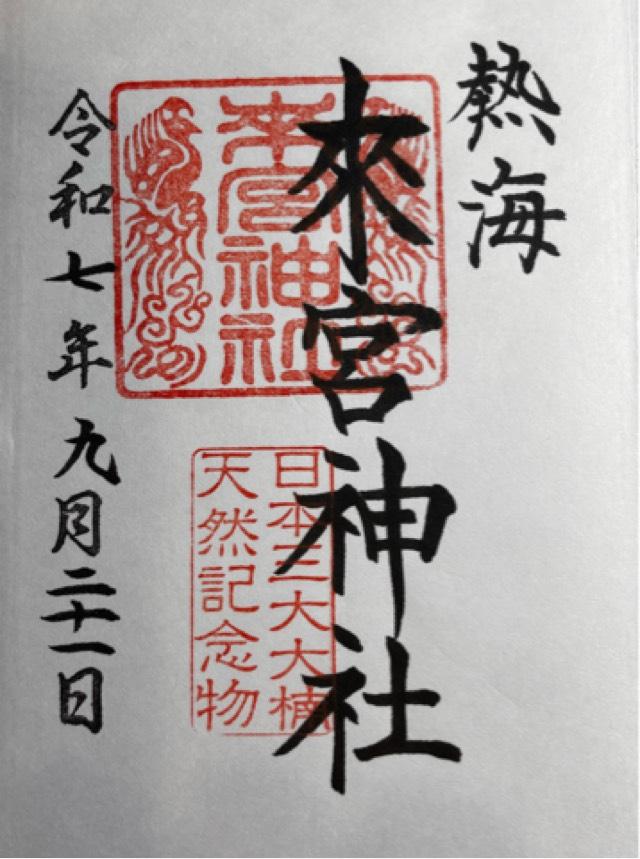 熱海
來宮神社
來宮神社
日本三大大楠
天然記念物
令和七年九月二十一日